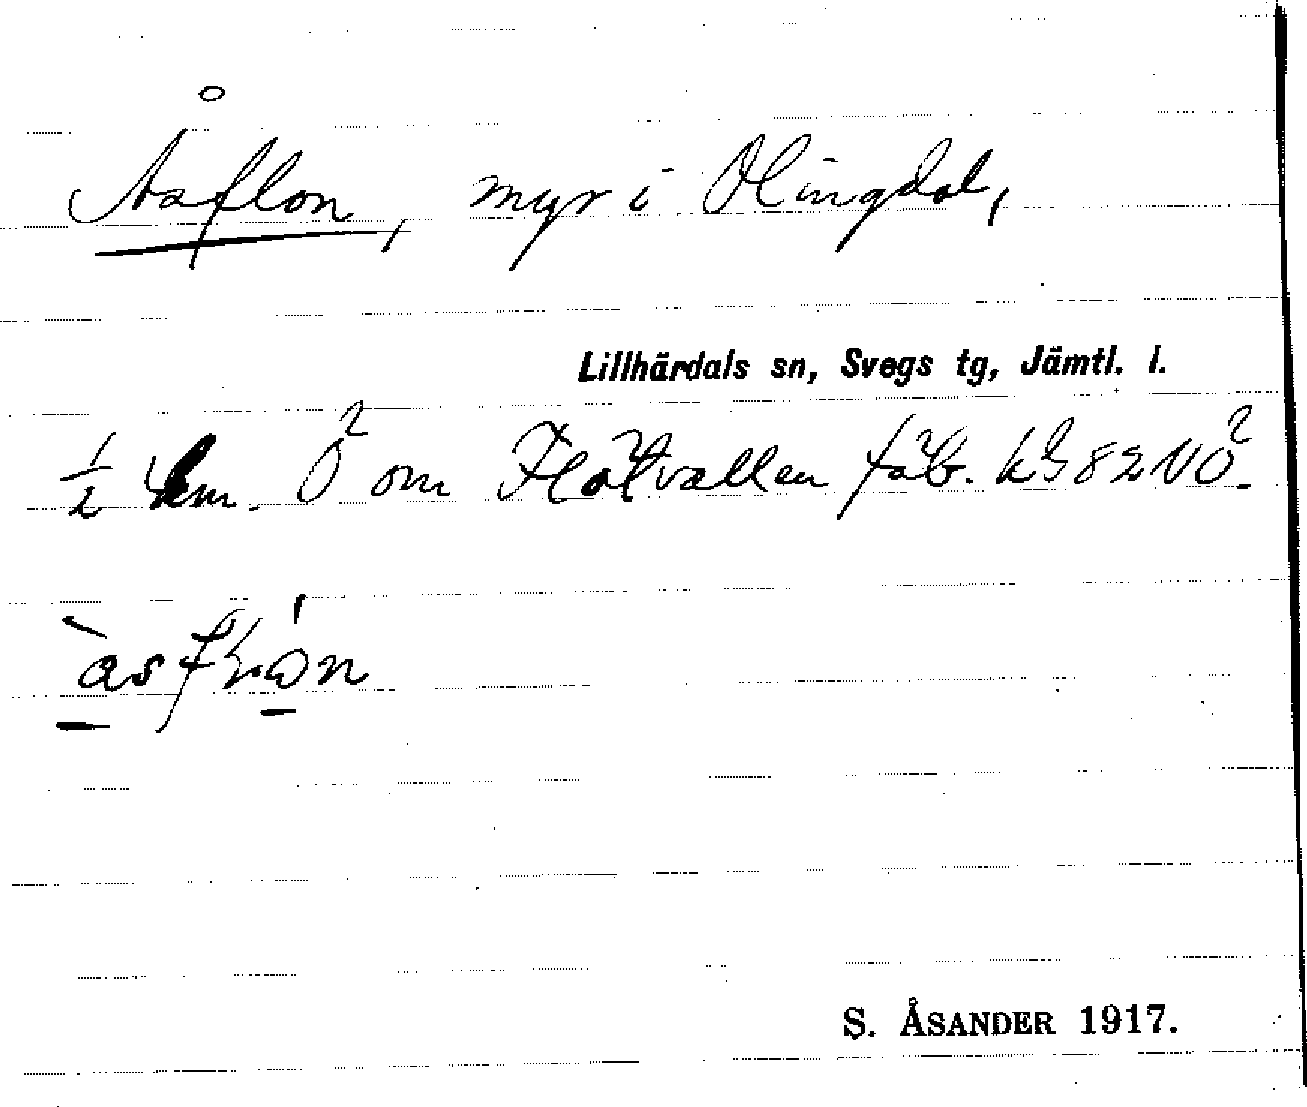 Åsflon, myr i Olingdal,
Lillhärdals sn, Svegs tg, Jämtl. l.
½ km. Ö om Flotvallen fäb. kg 82 NÖ.
S. ÅSANDER 1917.